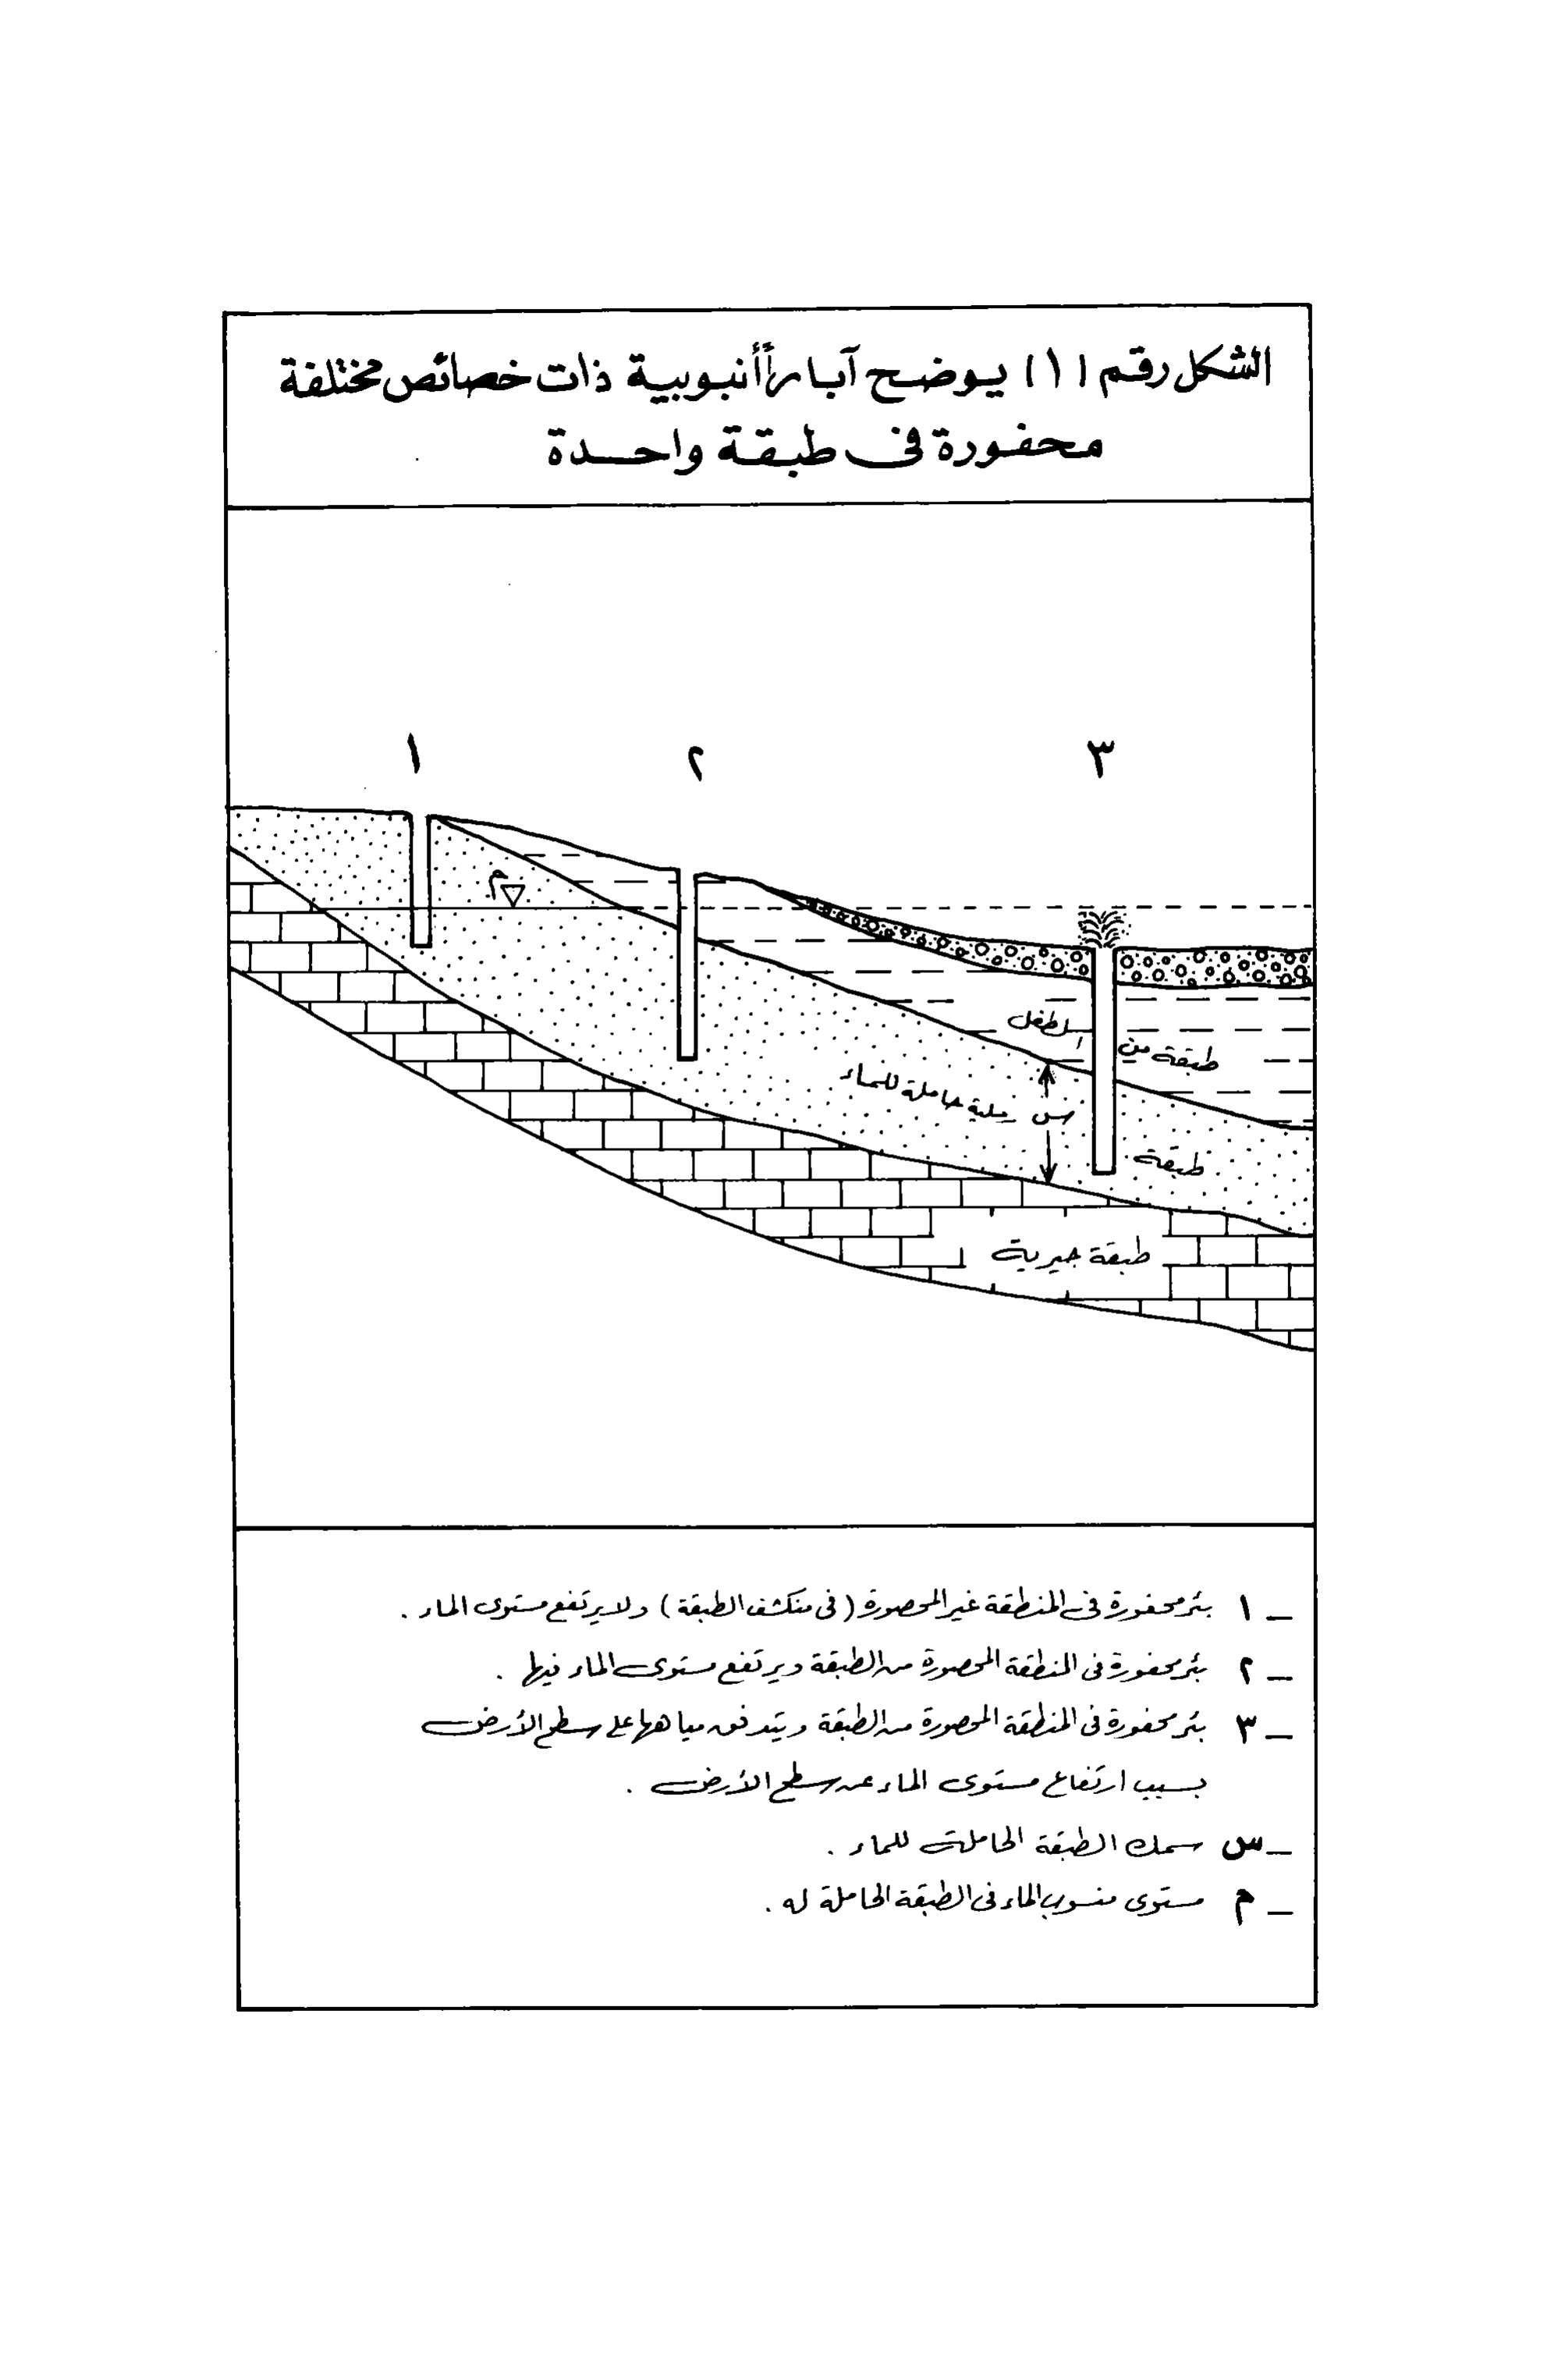 الشكل رقم (١) يوضح آباراً أنبوبية ذات خصائص مختلفة
محفورة فى طبقة واحدة
١
٢
٣
م
طبقة من الطفل
طبقة رملية حاملة للماء
س
طبقة جيرية
١ ـ بئر محفورة فى المنطقة غير المحصورة (فى منكشف الطبقة) ولا يرتفع مستوى الماء .
٢ ـ بئر محفورة فى المنطقة المحصورة من الطبقة ويرتفع مستوى الماء فيها .
٣ ـ بئر محفورة فى المنطقة المحصورة من الطبقة وتتدفق مياهها على سطح الأرض
بسبب ارتفاع مستوى الماء عن سطح الأرض .
س ـ سمك الطبقة الحاملة للماء .
م ـ مستوى منسوب الماء فى الطبقة الحاملة له .